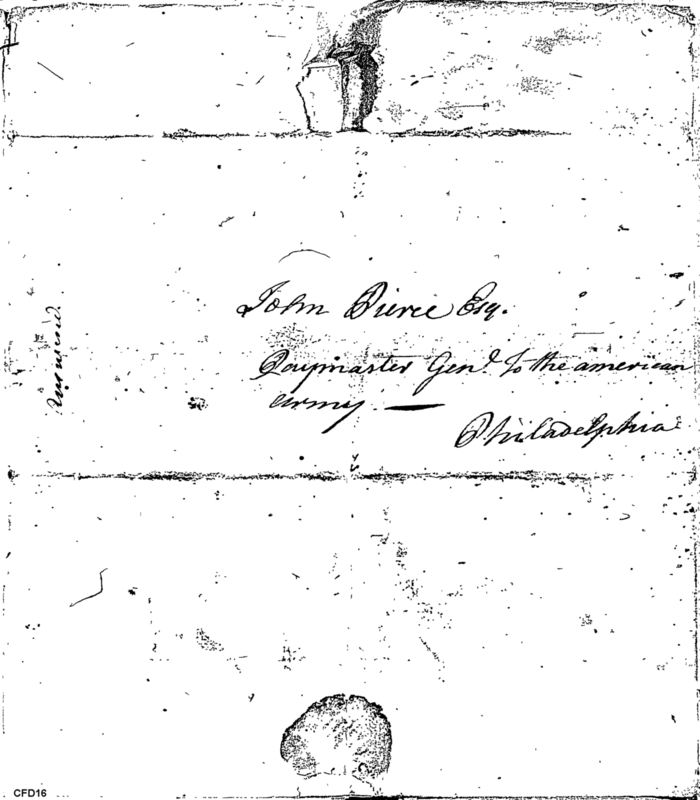 John Pierce Esq.
Paymaster Genl. To the american
army —
Philadelphia
CFD16